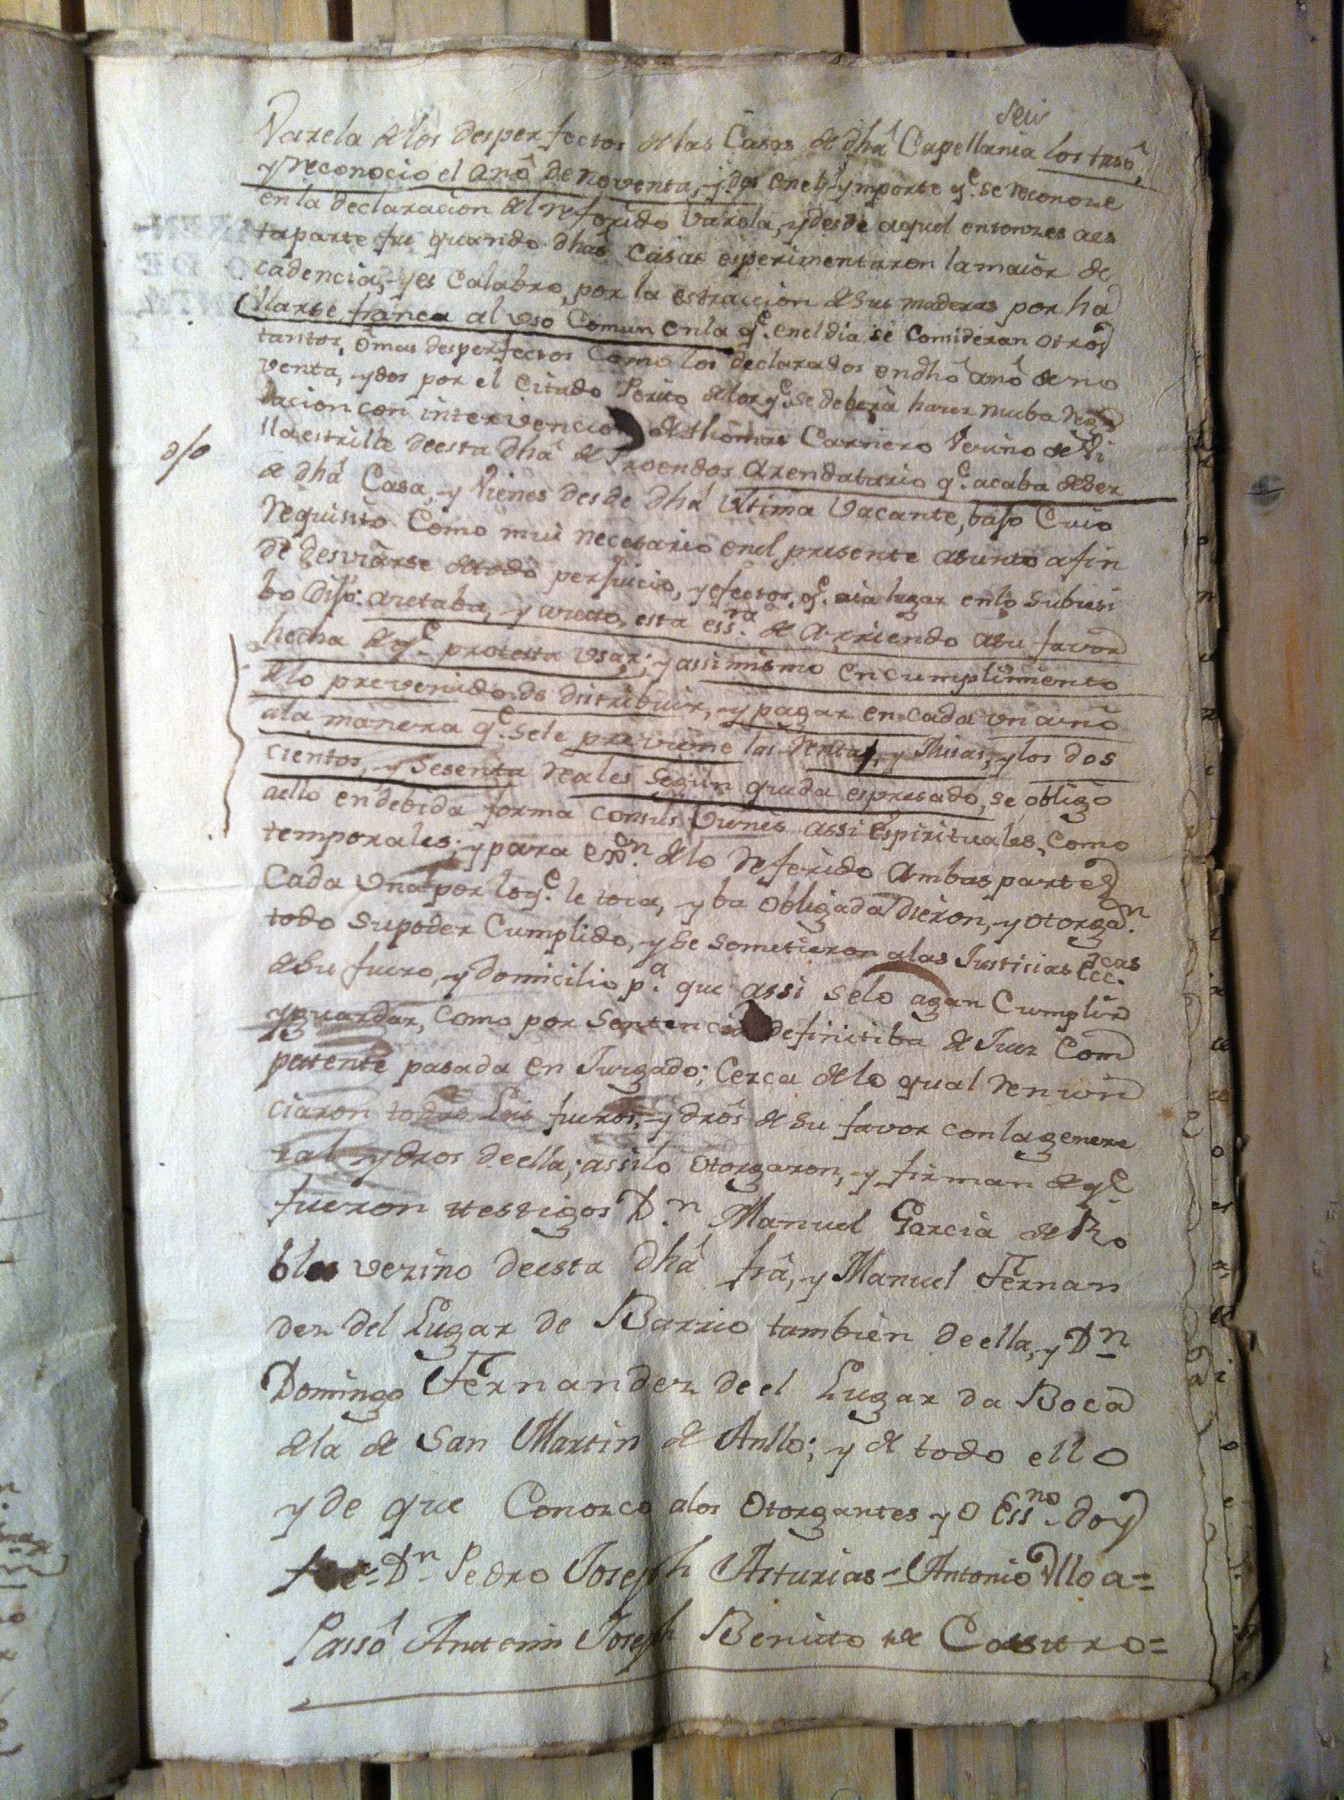 Seis
Varela de los desperfectos de las Casas de dhã Capellania los tasô,
y reconocio el anô de noventa, y dos en el ymporte q.e se reconoze
en la declaracion del referido Varela, y desde aquel entonzes a es
ta parte fue quando dhas Casas esperimentaron la maior de
cadencia, y es Calabro, por la estraccion de sus maderas por ha
llarse franca al uso Comun en la q.e en el dia se Consideran otros
tantos, ô mas desperfectos Como los declarados en dhô anô de no
venta, y dos por el Citado Perito de lo q.e se deberà hazer nueba
dacion con intervencion de Thomas Carnero Vezino de Vi
llaestrille de esta dhã de Proendos Arendatario q.e acaba de ser
de dhã Casa, y Vienes desde dhã Ultima Vacante, bajo Cuio
requisito Como mui necesario en el presente asunto a fin
de desviarse de todo perjuicio, y efectos q.e aia lugar en lo Subcesi
bo Dijo: azetaba, y azeto, esta ess.ra de Arriendo a su favor
hecha de q.e protesta usar; y assimismo en cumplimiento
de lo prevenido de distribuir, y pagar en cada un anô
a la manera q.e se le previene las Rentas, y Misas, y los dos
cientos, y Sesenta reales Segun queda espresado, se obligo
a ello en debida forma con sus Vienes assi Espirituales, Como
temporales; y para ex.n de lo referido Ambas partes
Cada Una por lo q.e le toca, y ba obligada Dieron, y otorga.n
todo Su poder Cumplido, y Se Sometieron a las Justicias Ecc.cas
de Su fuero, y domicilio p.a que assi se lo agan Cumplir
y guardar, Como por Sentencia definitiba de Juez Com
petente pasada en Juzgado; Cerca de lo qual renun
ciaron todas Leis fueros, y drôs de Su favor con la genere
ral y dros de ella; assi lo otorgaron, y firman de q.e
fueron testigos D.n Manuel Garcia de Ro
bles vezino de esta dhâ frâ, y Manuel Fernan
dez del Lugar de Barrio tambien de ella, y D.n
Domingo Fernandez de el Lugar da Boca
de la de San Martin de Anllo; y de todo ello
y de que Conozco a los Otorgantes yo Ess.no doy
fee = D.n Pedro Joseph Asturias = Antonio Ulloa =
Passô Antemi Joseph Benito de Castro =